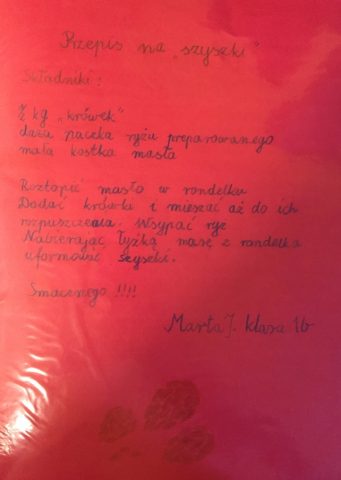 Przepis na „szyszki”
Składniki:
½ kg „krówek”
duża paczka ryżu preparowanego
mała kostka masła
Roztopić masło w rondelku
Dodać krówki i mieszać aż do ich
rozpuszczenia. Wsypać ryż
Nabierając łyżką masę z rondelka
uformować szyszki.
Smacznego !!!!
Marta J. klasa 1b